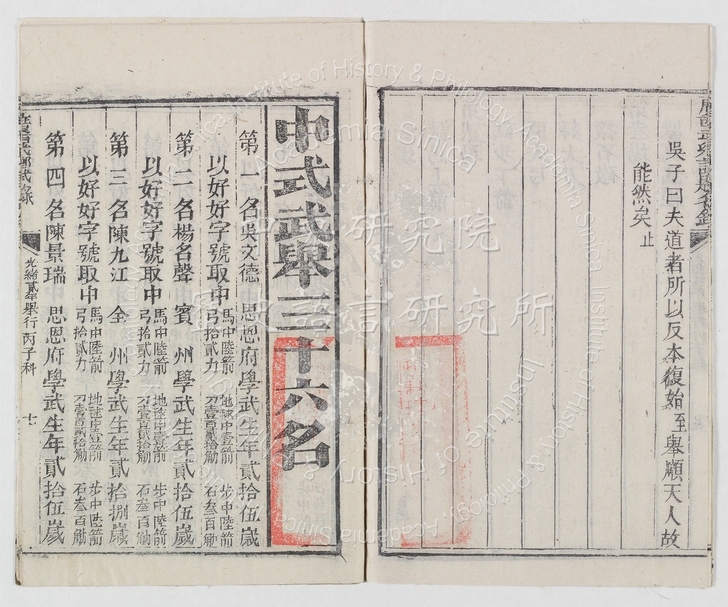 吳子曰夫道者所以反本復始至舉順天人故
能然矣止
中式武舉三十六名
第一名吳文德 思恩府學武生年貳拾伍歲
以好好字號取中 馬中陸箭 地毬中壹箭 步中陸箭
弓拾貳力 刀壹百貳拾觔 石叁百觔
第二名楊名聲 賓州學武生年貳拾伍歲
以好好字號取中 馬中陸箭 地毬中壹箭 步中陸箭
弓拾貳力 刀壹百貳拾觔 石叁百觔
第三名陳九江 全州學武生年貳拾捌歲
以好好字號取中 馬中陸箭 地毬中壹箭 步中陸箭
弓拾貳力 刀壹百貳拾觔 石叁百觔
第四名陳景瑞 思恩府學武生年貳拾伍歲
光緒貳年舉行丙子科 七
Institute of History & Philology, Academia Sinica